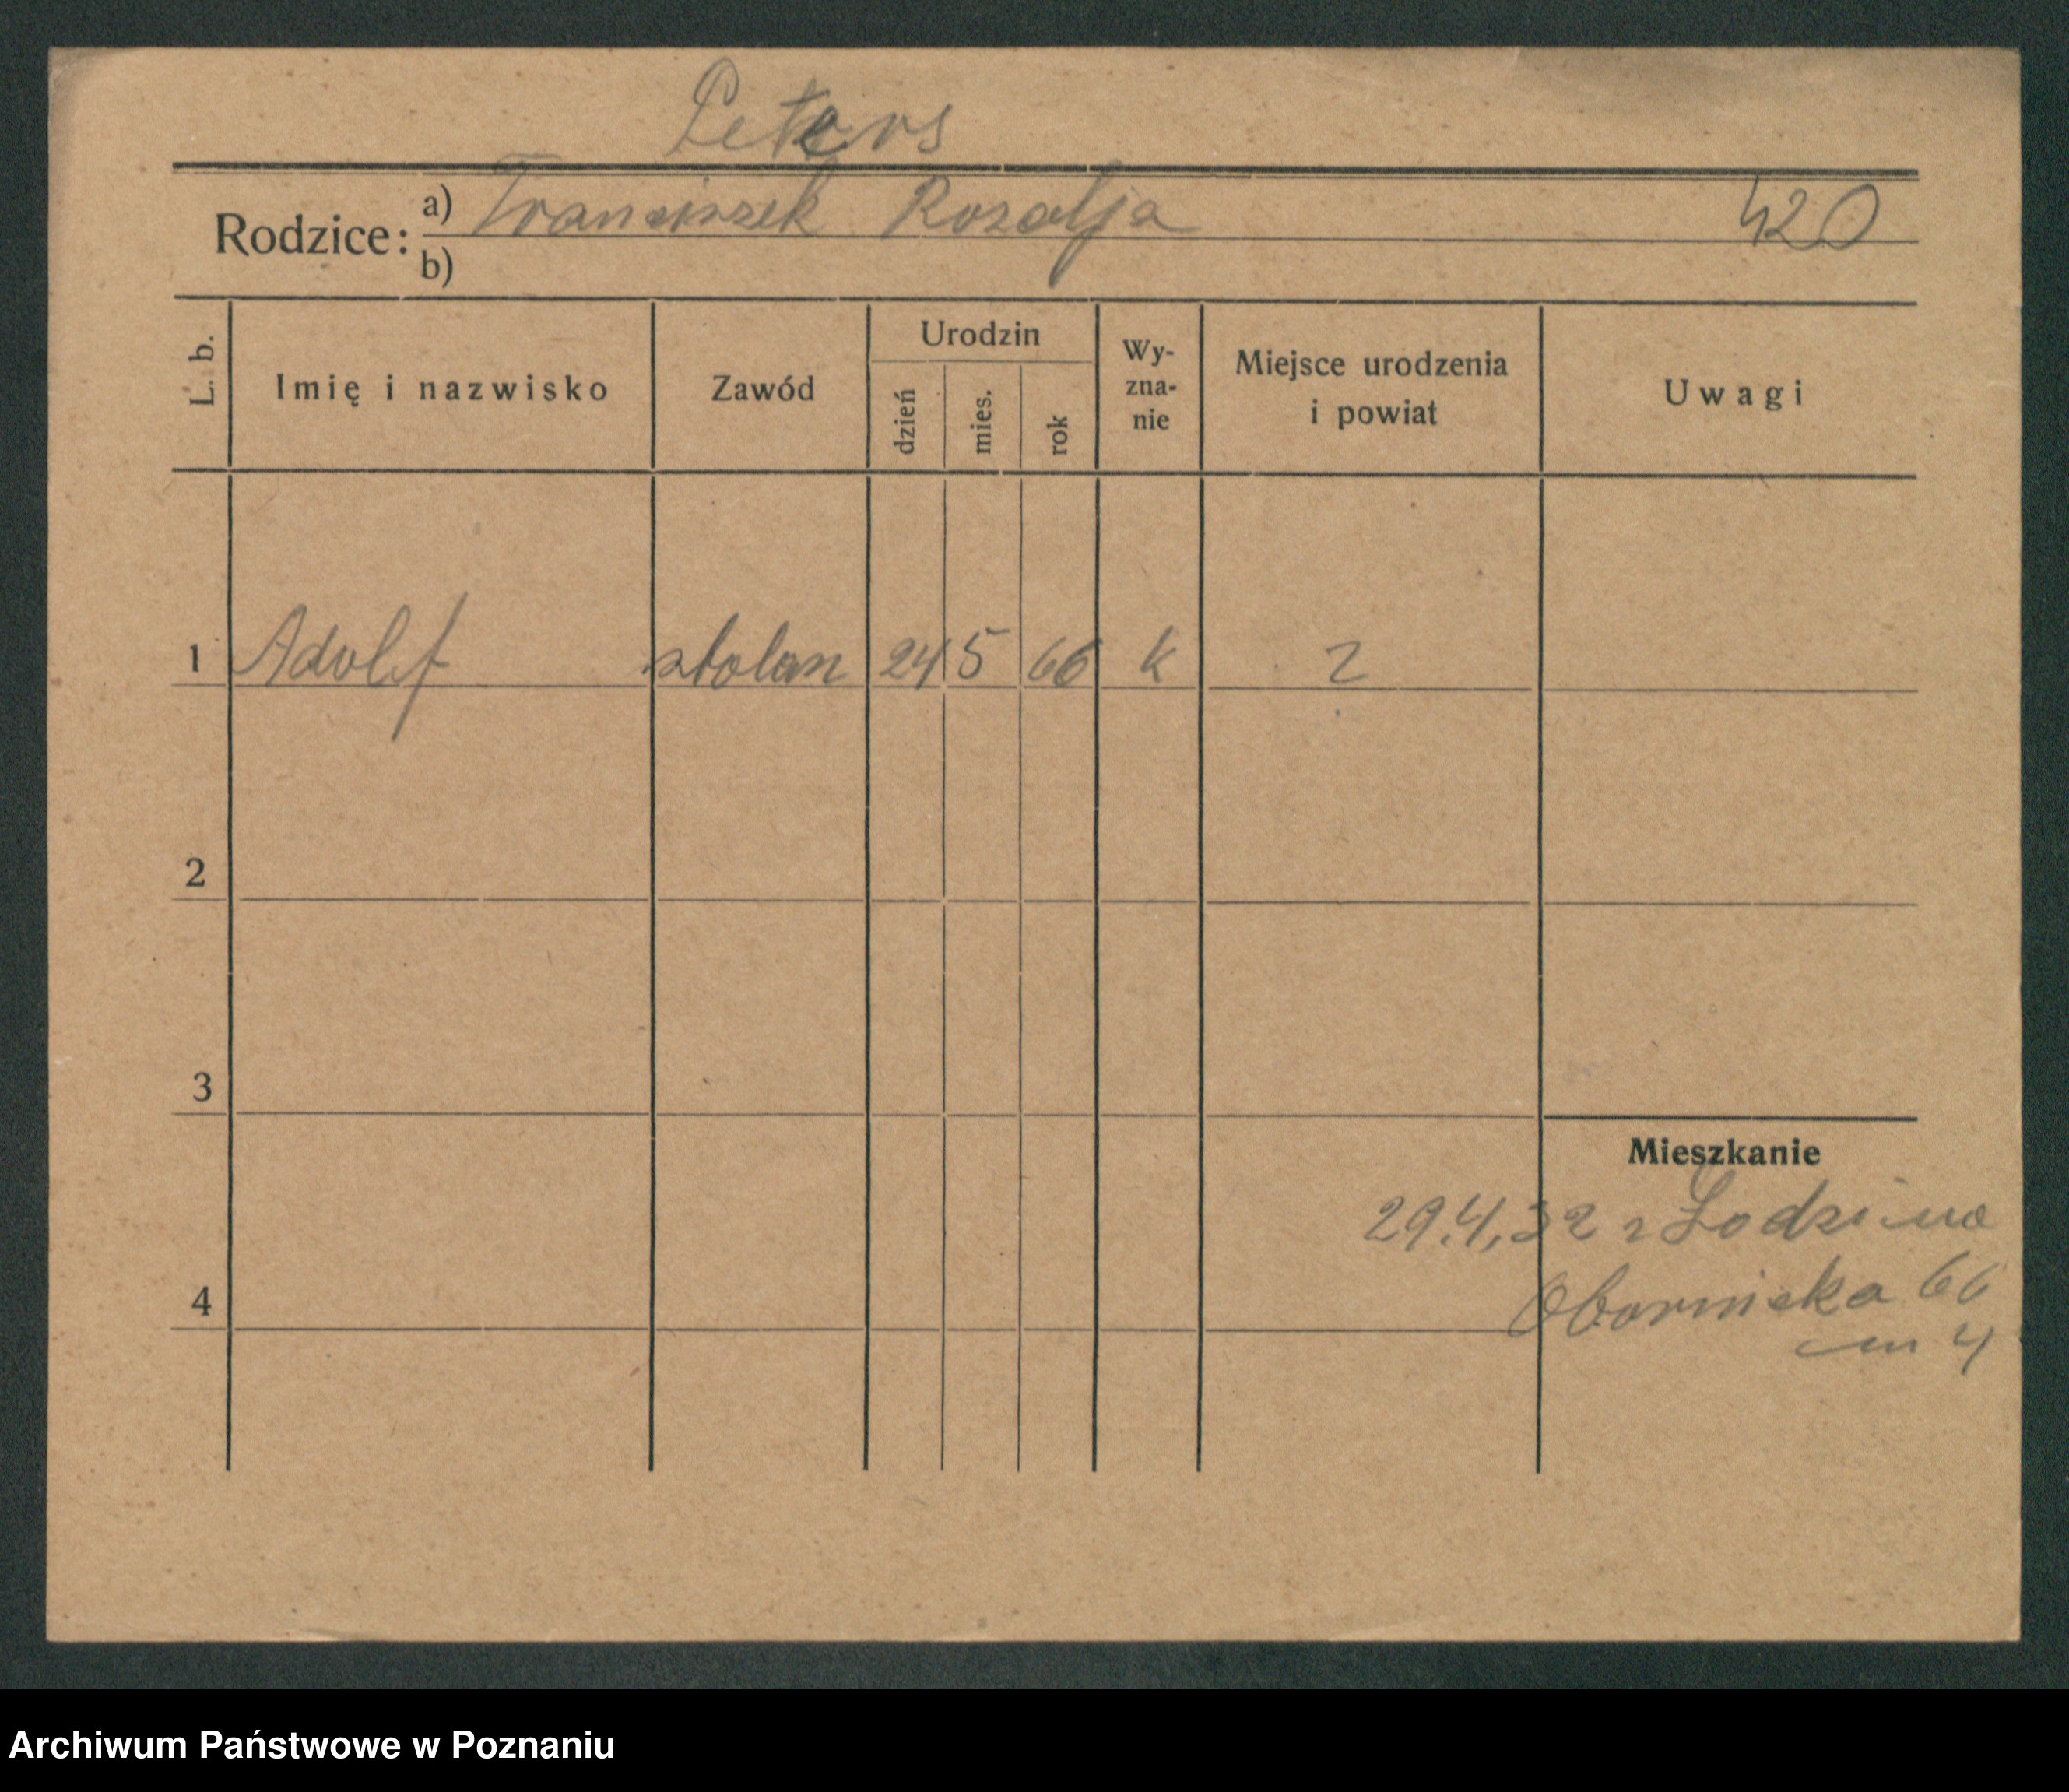 Peters
Rodzice: a) Franciszek Rozalja 420
b)
L. b. Imię i nazwisko Zawód Urodzin dzień mies. rok Wy-zna-nie Miejsce urodzenia i powiat Uwagi
1 Adolf stolarz 24 5 66 k
2
3
Mieszkanie
29.4.32 z Łodzi na
4 Obornicka 66
m 4
Archiwum Państwowe w Poznaniu